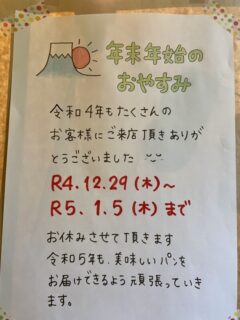 年末年始の
おやすみ
令和4年もたくさんの
お客様にご来店頂きありが
とうございました
R4.12.29(木)～
R5.1.5(木)まで
お休みさせて頂きます
令和5年も、美味しいパンを
お届けできるよう頑張っていき
ます。